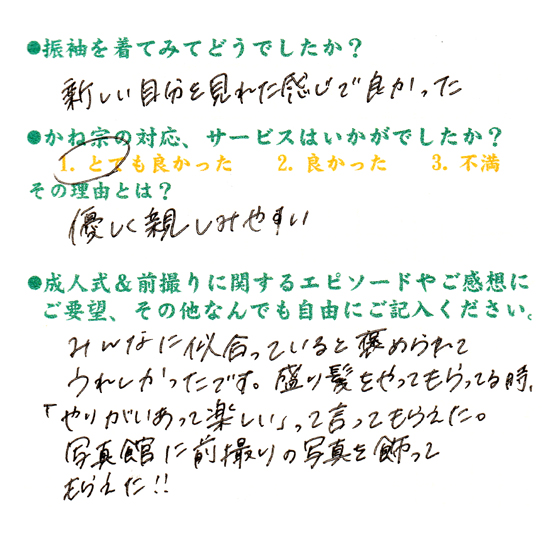 ●振袖を着てみてどうでしたか？
新しい自分を見れた感じで良かった
●かね宗の対応、サービスはいかがでしたか？
1. とても良かった　2. 良かった　3. 不満
その理由とは？
優しく親しみやすい
●成人式＆前撮りに関するエピソードやご感想に
ご要望、その他なんでも自由にご記入ください。
みんなに似合っていると褒められて
うれしかったです。盛り髪をやってもらってる時、
「やりがいあって楽しい」って言ってもらえた。
写真館に前撮りの写真を飾って
もらえた!!